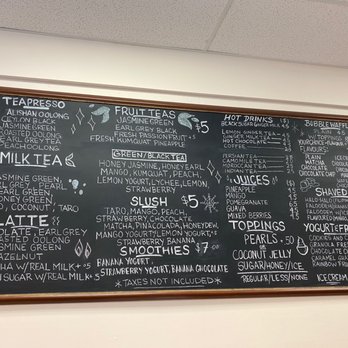 TEAPRESSO
ALISHAN OOLONG
CEYLON BLACK
JASMINE GREEN
ROASTED OOLONG
EARL GREY TEA
PEACH OOLONG
MILK TEA
JASMINE GREEN
EARL GREY PEARL
EARL GREEN
HONEY GREEN
COCONUT TARO
LATTE
CHOCOLATE, EARL GREY
ROASTED OOLONG
JASMINE GREEN
HAZELNUT
W/REAL MILK +.5
SUGAR W/REAL MILK
FRUIT TEAS
JASMINE GREEN
EARL GREY BLACK
FRESH PASSIONFRUIT
FRESH KUMQUAT PINEAPPLE
$5
GREEN/BLACK TEA
HONEY JASMINE, HONEY EARL
MANGO, KUMQUAT, PEACH,
LEMON YOGURT, LYCHEE, LEMON
STRAWBERRY
SLUSH $5
TARO, MANGO, PEACH,
STRAWBERRY, COCONUT,
MATCHA, PINACOLADA, HONEYDEW,
MANGO YOGURT, LEMON YOGURT,
STRAWBERRY BANANA
SMOOTHIES $7.00
BANANA YOGURT,
STRAWBERRY YOGURT, BANANA CHOCOLATE
*TAXES NOT INCLUDED*
HOT DRINKS
BLACK SUGAR GINGER MILK
LEMON GINGER TEA
GINGER MILK TEA
HOT CHOCOLATE
COFFEE
PERSIAN TEA
CAMOMILE TEA
INDIAN TEA
ARABIC TEA
JUICES
PINEAPPLE
MANGO
POMEGRANATE
PEACH
MIXED BERRIES
TOPPINGS
PEARLS .50
COCONUT JELLY
SUGAR/HONEY/ICE
REGULAR/LESS/NONE
BUBBLE WAFFLE
PLAIN
CHOCOLATE CHIP
SHAVED
YOGURT&FR
COOKIES AND C
GRANOLA
FRUIT
CEREAL
CARAMEL
RAINBOW
ICECREAM